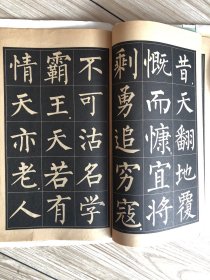 昔天翻地覆
慨而慷宜将
剩勇追穷寇
不可沽名学
霸王天若有
情天亦老人